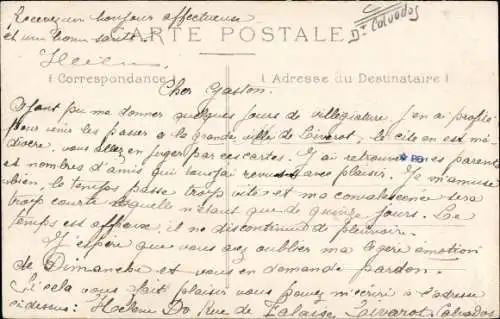 Recevez un bonjour affectueux
et une bonne santé.
Helene
Dt Calvados
CARTE POSTALE
Correspondance
Adresse du Destinataire
Cher Gaston.
Ayant pu me donner quelques jours de villégiature, j'en ai profité
pour venir les passer à la grande ville de Livarot, le cite en est mé-
diocre, vous allez en juger par ces cartes. J'ai retrouvé mes parents
et nombres d'amis qui tous j'ai revus avec plaisir. Je m'amuse
bien, le temps passe trop vite et ma convalescence sera
trop courte laquelle n'étant que de quinze jours. Le
temps est affreux, il ne discontinue de pleuvoir.
J'espère que vous avez oublier ma légère émotion
de Dimanche et vous en demande pardon.
Si cela vous fait plaisir vous pouvez m'écrire à l'adresse
ci-dessus: Rue de Falaise Livarot Calvados